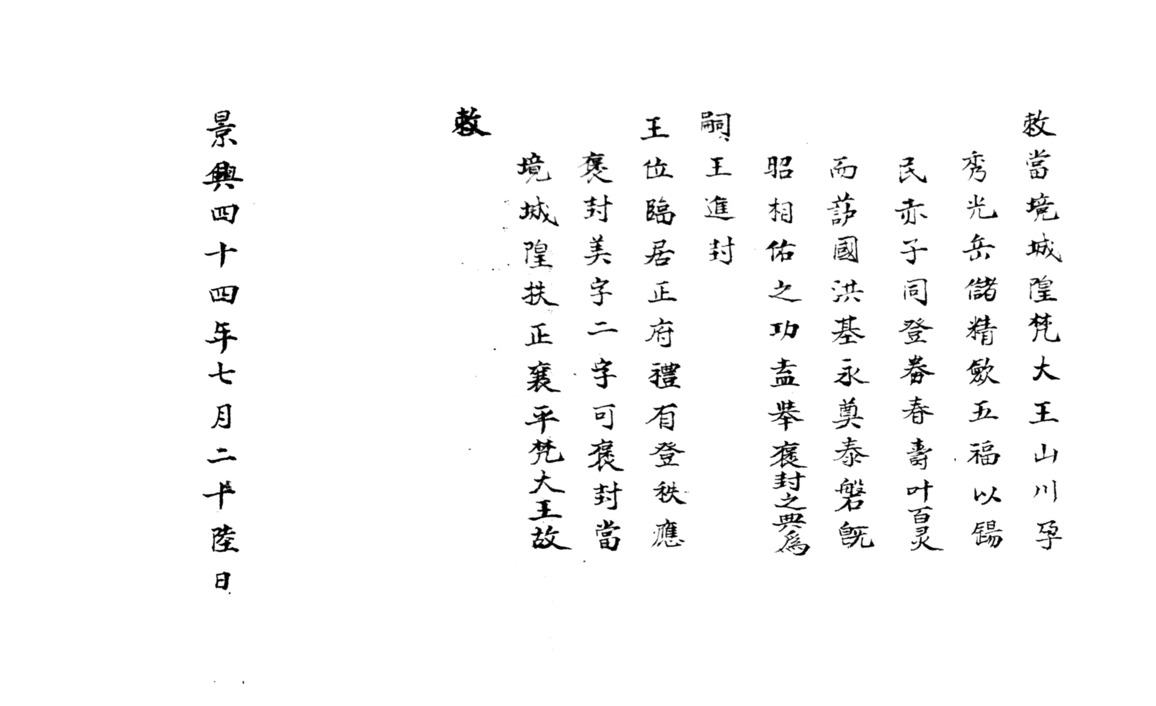 敕當境城隍梵大王山川孕
秀光岳儲精歛五福以錫
民赤子同登眷春壽叶百灵
而護國洪基永奠泰磐既
昭相佑之功盍舉褒封之典為
嗣王進封
王位臨居正府禮有登秩應
褒封美字二字可褒封當
境城隍扶正襄平梵大王故
敕
景興四十四年七月二十陸日